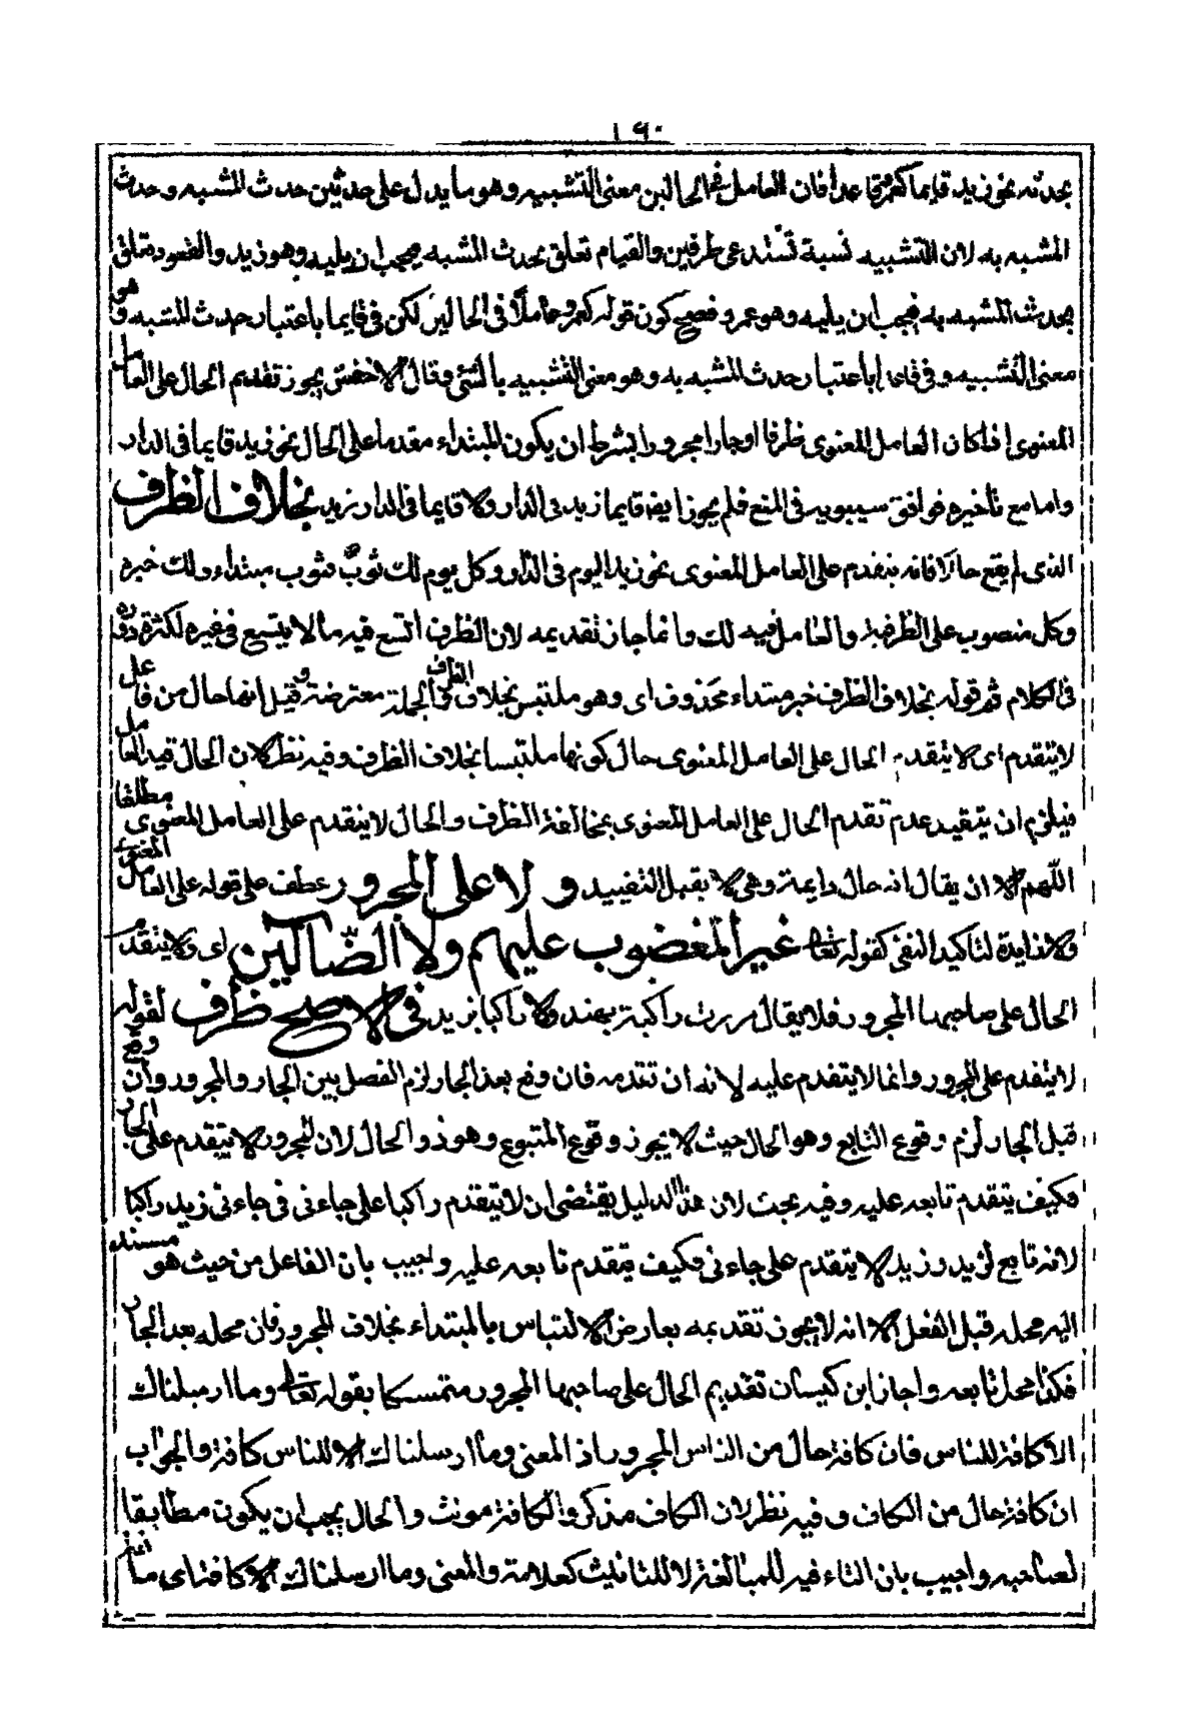 ١٦٠
بحدثه نحو زيد قايما كعمرو قاعدا فان العامل في الحالين معنى التشبيه وهو ما يدل على حدثين حدث المشبه وحدث
المشبه به لان التشبيه نسبة تستدعى طرفين والقيام تعلق بحدث المشبه فيجب ان يليه وهو زيد والقعود متعلق
بحدث المشبه به فيجب ان يليه وهو عمرو فصح كون قوله كعمرو عاملا فى الحالين لكن فى قايما باعتبار حدث المشبه وهو
معنى التشبيه وفى قاعدا باعتبار حدث المشبه به وهو معنى التشبيه بالشئ وقال الاخفش يجوز تقديم الحال على العامل
المعنوى اذا كان العامل المعنوى ظرفا او جارا مجرورا بشرط ان يكون المبتداء مقدما على الحال نحو زيد قايما فى الدار
واما مع تأخيره فوافق سيبويه فى المنع فلم يجوز ايضا قايما زيد فى الدار ولا قايما فى الدار زيد بخلاف الظرف
الذى لم يقع حالا فانه يتقدم على العامل المعنوى نحو زيد اليوم فى الدار وكل يوم لك ثوب فثوب مبتداء ولك خبره
وكل منصوب على الظرفية والعامل فيه لك وانما جاز تقديمه لان الظرف اتسع فيه ما لا يتسع فى غيره لكثرة دوره
فى الكلام ثم قوله بخلاف الظرف خبر مبتداء محذوف اى وهو ملتبس بخلاف الظرف والجملة معترضة وقيل انها حال من فاعل
لا يتقدم اى لا يتقدم الحال على العامل المعنوى حال كونها ملتبسا بخلاف الظرف وفيه نظر لان الحال قيد العامل
فيلزم ان يتقيد عدم تقدم الحال على العامل المعنوى بمخالفة الظرف والحال لا يتقدم على العامل المعنوى مطلقا
اللهم الا ان يقال انه حال دايمة وهى لا يقبل التقييد ولا على المجرور عطف على قوله على العامل المعنوى
ولا زايدة لتاكيد النفى كقوله تعالى غير المغضوب عليهم ولا الضالين اى ولا يتقدم
الحال على صاحبها المجرور فلا يقال مررت راكبة بهند ولا راكبا بزيد فى الاصح ظرف لقوله
لا يتقدم على المجرور وانما لا يتقدم عليه لانه ان تقدمه فان وقع بعد الجار لزم الفصل بين الجار والمجرور وان وقع
قبل الجار لزم وقوع التابع وهو الحال حيث لا يجوز وقوع المتبوع وهو ذو الحال لان المجرور لا يتقدم على الجار
فكيف يتقدم تابعه عليه وفيه بحث لان هذا الدليل يقتضى ان لا يتقدم راكبا على جاءنى فى جاءنى زيد راكبا
لانه تابع لزيد وزيد لا يتقدم على جاءنى فكيف يتقدم تابعه عليه واجيب بان الفاعل من حيث هو مسند
اليه محله قبل الفعل الا انه لا يجوز تقديمه بعارض الالتباس بالمبتداء بخلاف المجرور فان محله بعد الجار
فكذا محل تابعه واجاز ابن كيسان تقديم الحال على صاحبها المجرور متمسكا بقوله تعالى وما ارسلناك
الا كافة للناس فان كافة حال من الناس المجرور اذ المعنى وما ارسلناك الا للناس كافة والجواب
ان كافة حال من الكاف وفيه نظر لان الكاف مذكر والكافة مونث والحال يجب ان يكون مطابقا
لصاحبه واجيب بان التاء فيه للمبالغة لا للتانيث كعلامة والمعنى وما ارسلناك الا كافا اى مانعا